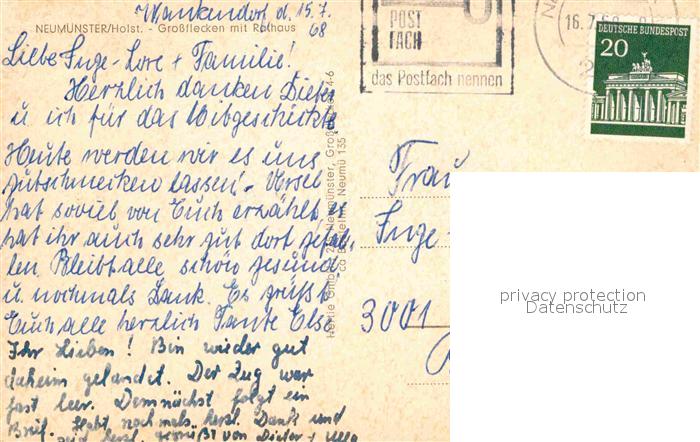 Wankendorf d. 15.7.
68
NEUMÜNSTER/Holst. - Großflecken mit Rathaus
Liebe Inge-Lore + Familie!
Herzlich danken Dieter
u. ich für das Mitgeschickte
Heute werden wir es uns
gutschmecken lassen! - Ursel
hat soviel von Euch erzählt, es
hat ihr auch sehr gut dort gefal-
len. Bleibt alle schön gesund
u. nochmals Dank. Es grüßt
Euch alle herzlich Tante Else
Ihr Lieben! Bin wieder gut
daheim gelandet. Der Zug war
fast leer. Demnächst folgt ein
Brief. Habt nochmals herzl. Dank und
seid herzl. gegrüßt von Dieter + Ulla
Hertie GmbH, 235 Neumünster, Großflecken
Neumü 135
POST
FACH
das Postfach nennen
16.7.68
DEUTSCHE BUNDESPOST
20
Frau
Inge-
3001
privacy protection
Datenschutz